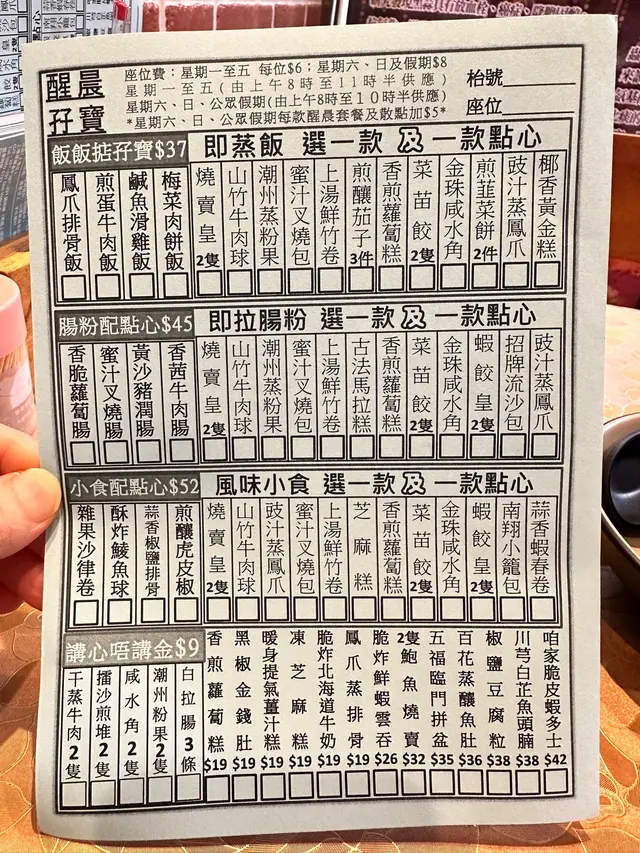 醒晨
孖寶
座位費：星期一至五 每位$6；星期六、日及假期$8
星期一至五(由上午8時至11時半供應)
星期六、日、公眾假期(由上午8時至10時半供應)
*星期六、日、公眾假期每款醒晨套餐及散點加$5*
枱號
座位
飯飯掂孖寶$37
即蒸飯 選一款 及 一款點心
鳳爪排骨飯
煎蛋牛肉飯
鹹魚滑雞飯
梅菜肉餅飯
燒賣皇2隻
山竹牛肉球
潮州蒸粉果
蜜汁叉燒包
上湯鮮竹卷
煎釀茄子3件
香煎蘿蔔糕
菜苗餃2隻
金珠咸水角
煎韮菜餅2件
豉汁蒸鳳爪
椰香黃金糕
腸粉配點心$45
即拉腸粉 選一款 及 一款點心
香脆蘿蔔腸
蜜汁叉燒腸
黃沙豬潤腸
香茜牛肉腸
燒賣皇2隻
山竹牛肉球
潮州蒸粉果
蜜汁叉燒包
上湯鮮竹卷
古法馬拉糕
香煎蘿蔔糕
菜苗餃2隻
金珠咸水角
蝦餃皇2隻
招牌流沙包
豉汁蒸鳳爪
小食配點心$52
風味小食 選一款 及 一款點心
雜果沙律卷
酥炸鯪魚球
蒜香椒鹽排骨
煎釀虎皮椒
燒賣皇2隻
山竹牛肉球
豉汁蒸鳳爪
蜜汁叉燒包
上湯鮮竹卷
芝麻糕
香煎蘿蔔糕
菜苗餃2隻
金珠咸水角
蝦餃皇2隻
南翔小籠包
蒜香蝦春卷
講心唔講金$9
干蒸牛肉2隻
擂沙煎堆2隻
咸水角2隻
潮州粉果2隻
白拉腸3條
香煎蘿蔔糕$19
黑椒金錢肚$19
暖身提氣薑汁糕$19
凍芝麻糕$19
脆炸北海道牛奶$19
鳳爪蒸排骨$19
脆炸鮮蝦雲吞$26
2隻鮑魚燒賣$32
五福臨門拼盆$35
百花蒸釀魚肚$36
椒鹽豆腐粒$38
川芎白芷魚頭腩$38
咱家脆皮蝦多士$42